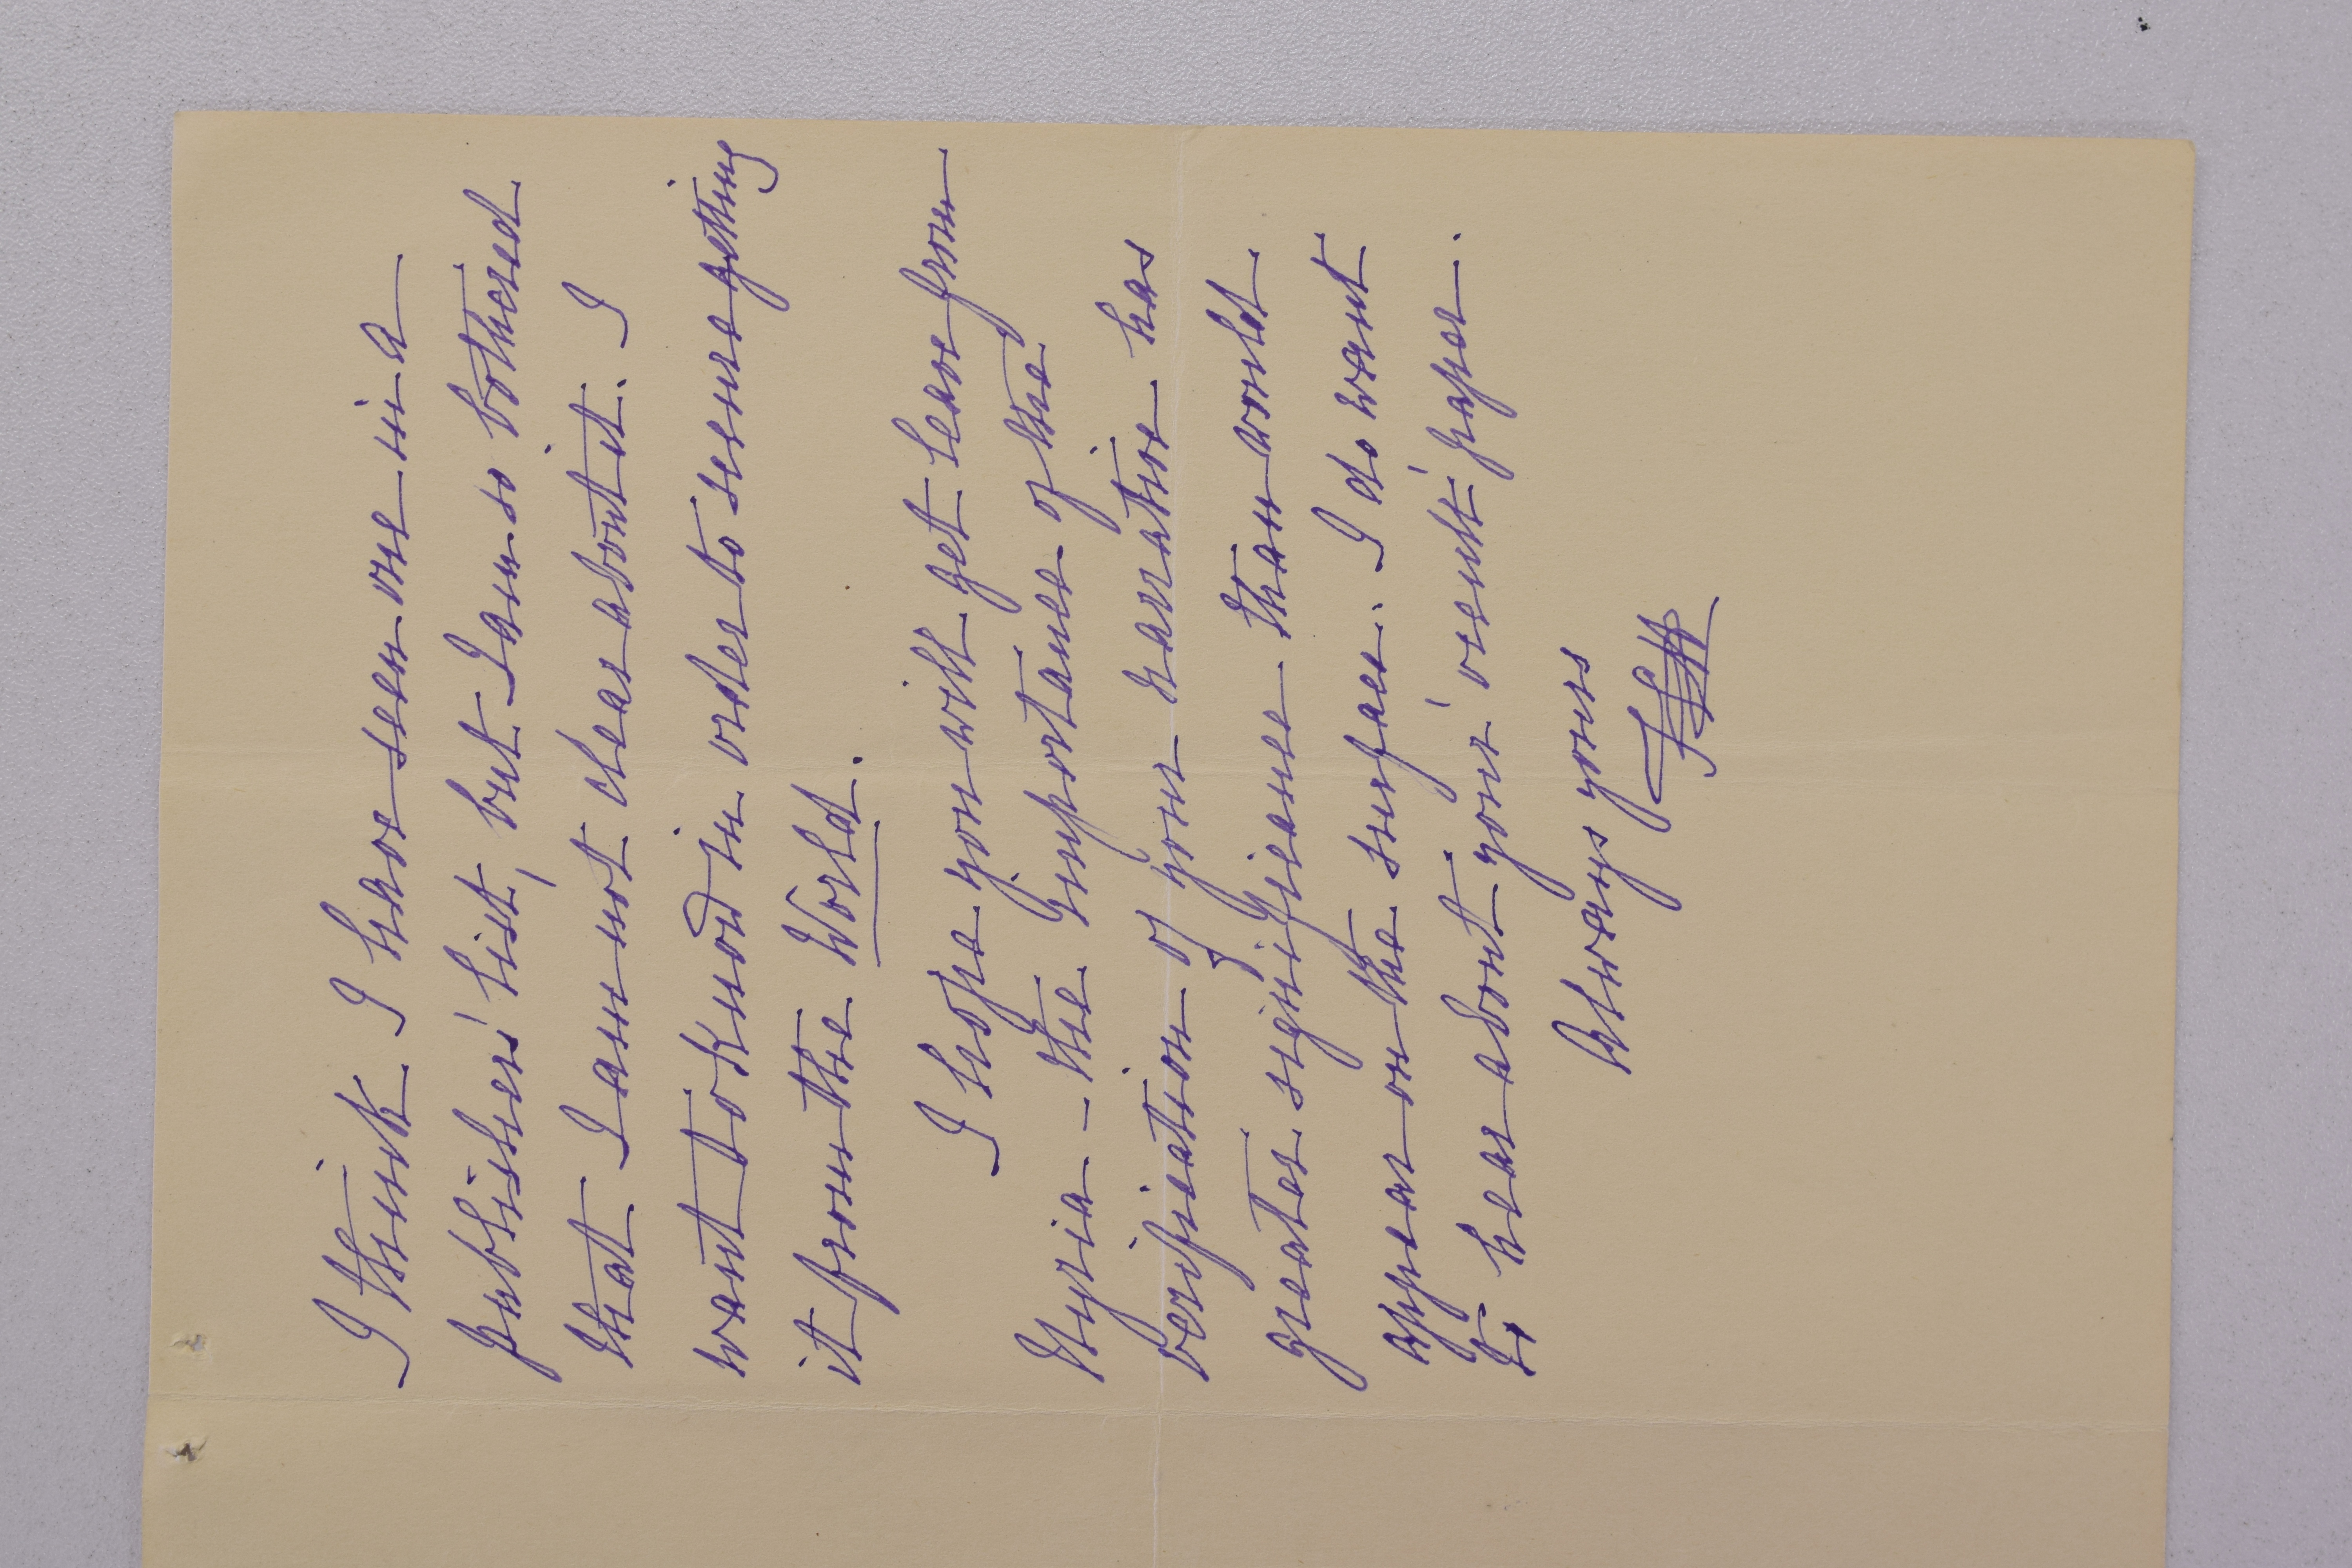 I think I have seen one in a
publishers' list, but I am so bothered
that I am not clear about it. I
want to know in order to secure getting
it from the World.
I hope you will get leave from
Styria - the importance of the
verification of your narration has
greater significance than would
appear on the surface. I do want
to hear about your 'occult' paper.
Always yours